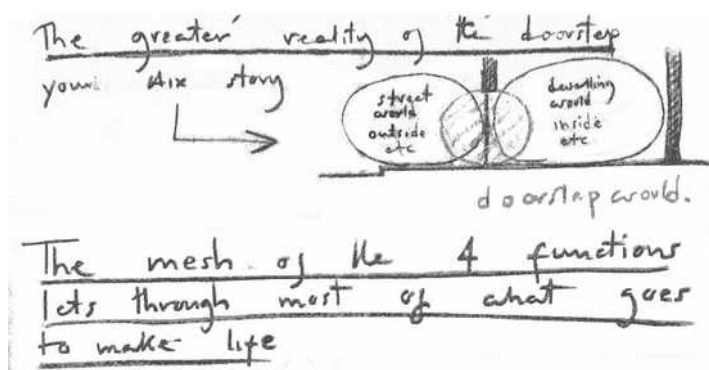 The greater reality of the doorstep
your Aix story
street
world
outside
etc
dwelling
world
inside
etc.
doorstep world.
The mesh of the 4 functions
lets through most of what goes
to make life